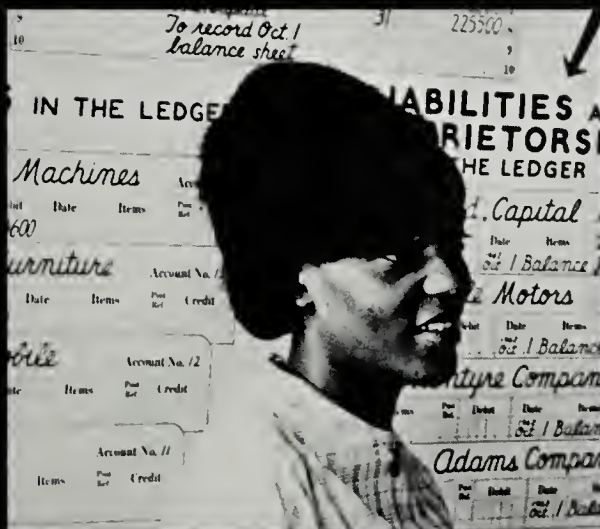 9
10
To record Oct. 1
balance sheet
31
225500
9
10
IN THE LEDGE
IABILITIES A
RIETORS
HE LEDGER
Machines
Date Items Post Ref
600
urniture Account No.
Date Items Post Ref Credit
bile Account No. 12
Items Post Ref Credit
Account No. 11
Items Post Ref Credit
d. Capital
Date Items
Oct. 1 Balance
e Motors
Date Items
Oct. 1 Balanc
ntyre Compan
Post Ref Debit Date Items
Oct. 1 Balan
Adams Compa
Post Ref Debit Date Items
Oct. 1 Balan